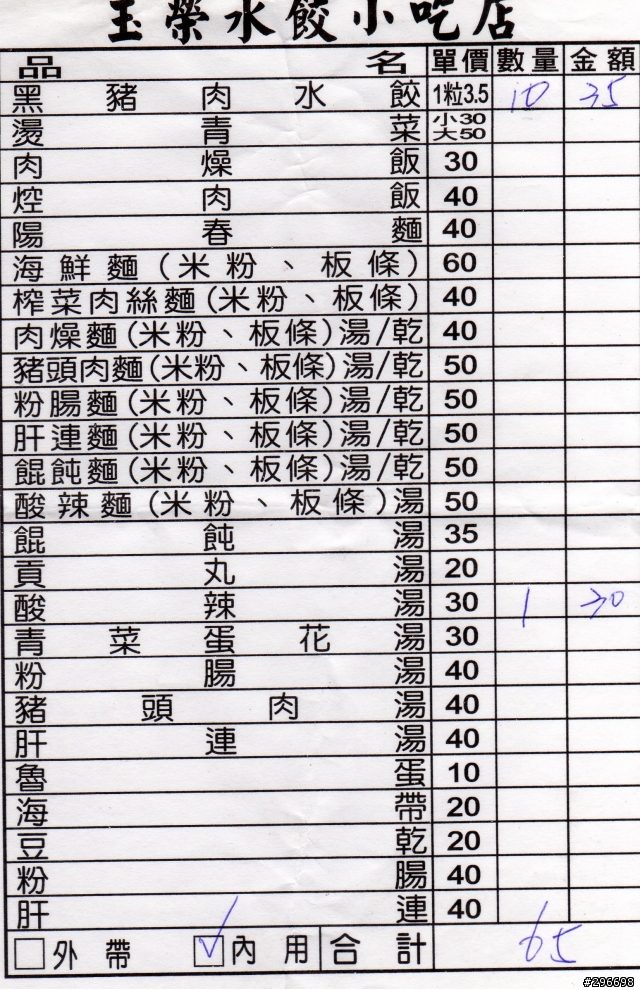 玉榮水餃小吃店
品名 單價 數量 金額
黑豬肉水餃 1粒3.5 10 35
燙青菜 小30 大50
肉燥飯 30
焢肉飯 40
陽春麵 40
海鮮麵(米粉、板條) 60
榨菜肉絲麵(米粉、板條) 40
肉燥麵(米粉、板條)湯/乾 40
豬頭肉麵(米粉、板條)湯/乾 50
粉腸麵(米粉、板條)湯/乾 50
肝連麵(米粉、板條)湯/乾 50
餛飩麵(米粉、板條)湯/乾 50
酸辣麵(米粉、板條)湯 50
餛飩湯 35
貢丸湯 20
酸辣湯 30 1 30
青菜蛋花湯 30
粉腸湯 40
豬頭肉湯 40
肝連湯 40
魯蛋 10
海帶 20
豆乾 20
粉腸 40
肝連 40
外帶 內用 合計 65
#296698